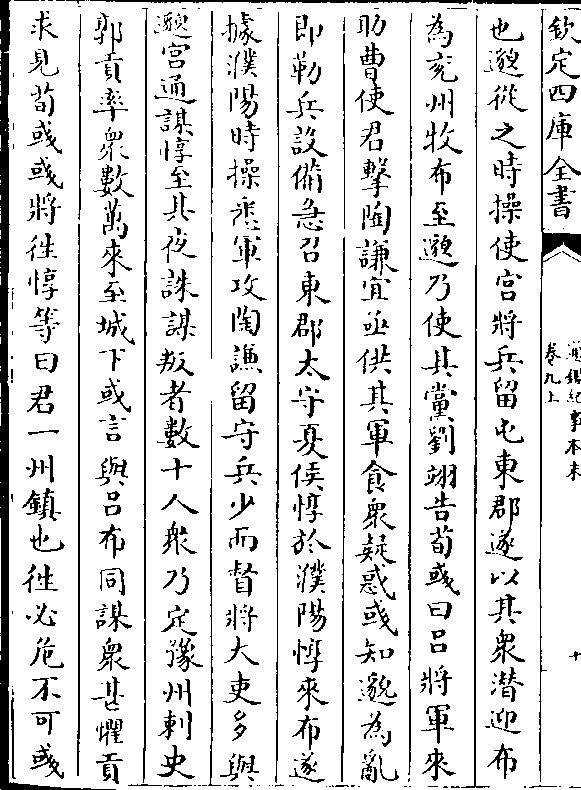 欽定四庫全書
通鑑紀事本末
卷九上
十
也邈從之時操使宮將兵留屯東郡遂以其衆潜迎布
為兖州牧布至邈乃使其黨劉翊告荀彧曰呂將軍來
助曹使君擊陶謙宜亟供其軍食衆疑惑彧知邈為亂
即勒兵設備急召東郡太守夏侯惇於濮陽惇來布遂
據濮陽時操悉軍攻陶謙留守兵少而督將大吏多與
邈宮通謀惇至其夜誅謀叛者數十人衆乃定豫州刺史
郭貢率衆數萬來至城下或言與呂布同謀衆甚懼貢
求見荀彧彧將徃惇等曰君一州鎮也徃必危不可彧